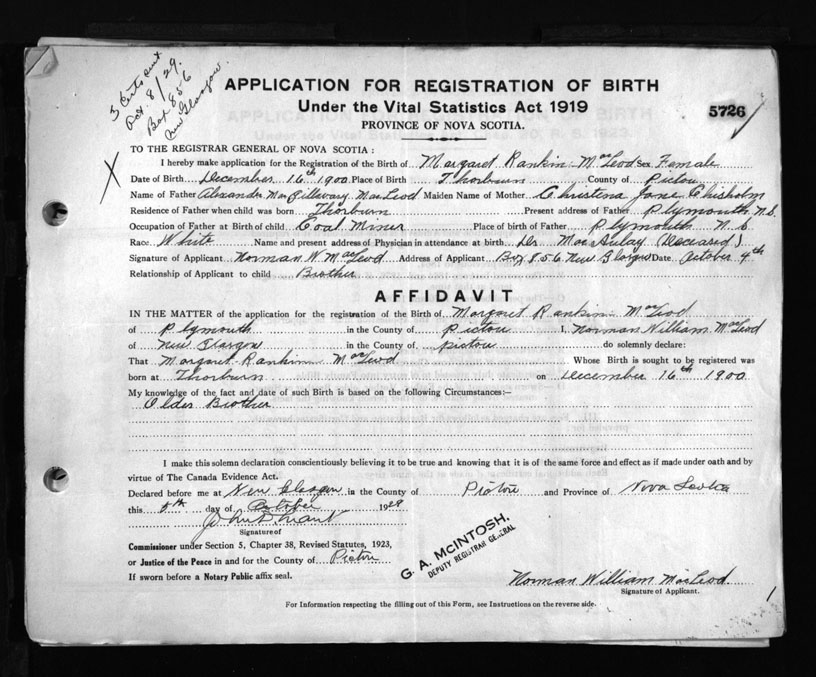 3 Certs sent
Oct. 8/29.
Box 856
New Glasgow.
APPLICATION FOR REGISTRATION OF BIRTH
Under the Vital Statistics Act 1919
5726
PROVINCE OF NOVA SCOTIA.
TO THE REGISTRAR GENERAL OF NOVA SCOTIA :
I hereby make application for the Registration of the Birth of Margaret Rankin MacLeod Sex Female
Date of Birth December 16th 1900 Place of Birth Thorburn County of Pictou
Name of Father Alexander MacGillavary MacLeod Maiden Name of Mother Christena Jane Chisholm
Residence of Father when child was born Thorburn Present address of Father Plymouth N.S.
Occupation of Father at Birth of child Coal Miner Place of birth of Father Plymouth N.S.
Race White Name and present address of Physician in attendance at birth Dr. MacAulay (Deceased)
Signature of Applicant Norman W. MacLeod Address of Applicant Box 856 New Glasgow Date October 4th
Relationship of Applicant to child Brother
AFFIDAVIT
IN THE MATTER of the application for the registration of the Birth of Margaret Rankin MacLeod
of Plymouth in the County of Pictou I, Norman William MacLeod
of New Glasgow in the County of Pictou do solemnly declare:
That Margaret Rankin MacLeod Whose Birth is sought to be registered was
born at Thorburn on December 16th 1900
My knowledge of the fact and date of such Birth is based on the following Circumstances:—
Older Brother
I make this solemn declaration conscientiously believing it to be true and knowing that it is of the same force and effect as if made under oath and by
virtue of The Canada Evidence Act.
Declared before me at New Glasgow in the County of Pictou and Province of Nova Scotia
this day of October 19
Signature of
Commissioner under Section 5, Chapter 38, Revised Statutes, 1923,
or Justice of the Peace in and for the County of Pictou
If sworn before a Notary Public affix seal.
G. A. McINTOSH,
DEPUTY REGISTRAR GENERAL
Norman William MacLeod
Signature of Applicant.
For Information respecting the filling out of this Form, see Instructions on the reverse side.